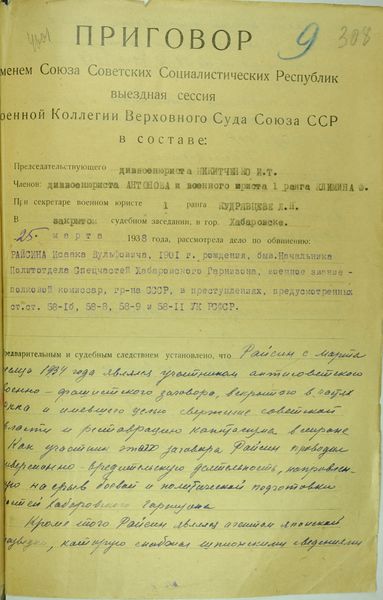 9 308
ПРИГОВОР
менем Союза Советских Социалистических Республик
выездная сессия
оенной Коллегии Верховного Суда Союза ССР
в составе:
Председательствующего диввоенюриста НИКИТЧЕНКО И.Т.
Членов: диввоенюриста АНТОНОВА и военного юриста 1 ранга КЛИМИНА Ф.
При секретаре военном юристе 1 ранга КУДРЯВЦЕВЕ Л.Н.
В закрытом судебном заседании, в гор. Хабаровске.
25 марта 1938 г., рассмотрела дело по обвинению:
РАЙСИНА Исаака Вульфовича, 1901 г. рождения, быв. Начальника
Политотдела Спецчастей Хабаровского Гарнизона, военное звание -
полковой комиссар, гр-на СССР, в преступлениях, предусмотренных
ст.ст. 58-1б, 58-8, 58-9 и 58-11 УК РСФСР.
редварительным и судебным следствием установлено, что Райсин с марта
есяца 1934 года являлся участником антисоветского
военно-фашистского заговора, вскрытого в частях
и имевшего целью свержение советской
власти и реставрацию капитализма в стране
Как участник этого заговора Райсин проводил
диверсионно-вредительскую деятельность, направлен-
ную на срыв боевой и политической подготовки
частей Хабаровского Гарнизона
Кроме того Райсин являлся агентом японской
разведки, которую снабжал шпионскими сведениями